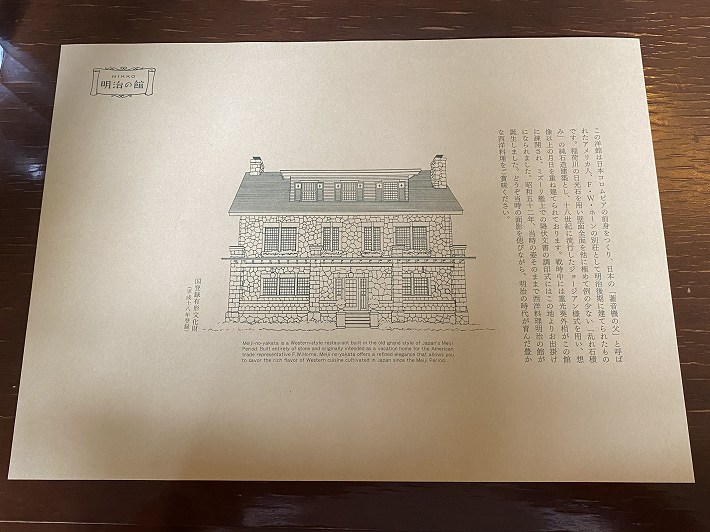 NIKKO
明治の館
この洋館は日本コロムビアの前身をつくり、日本の「蓄音機の父」と呼ば
れたアメリカ人、F・W・ホーンの別荘として明治後期に建てられたもの
です。稲荷川の日光石を用い壁面全面を他に極めて例の少ない「乱れ石積
み」の純石造建築とし、十八世紀に流行したジョージアン様式を用い、想
像以上の月日を重ね建てられております。戦時中には重光葵外相がこの館
に疎開され、ミズーリ艦上での降伏文書の調印式にはこの地よりお出掛け
になられました。昭和五十二年、当時の姿そのままで西洋料理明治の館が
誕生しました。どうぞ当時の面影を偲びながら、明治の時代が育んだ豊か
な西洋料理をご賞味ください。
国登録有形文化財
（平成十八年登録）
Meiji-no-yakata is a Western-style restaurant built in the old grand style of Japan's Meiji
Period. Built entirely of stone and originally intended as a vacation home for the American
trade representative F.W.Horne, Meiji-no-yakata offers a refined elegance that allows you
to savor the rich flavor of Western cuisine cultivated in Japan since the Meiji Period.